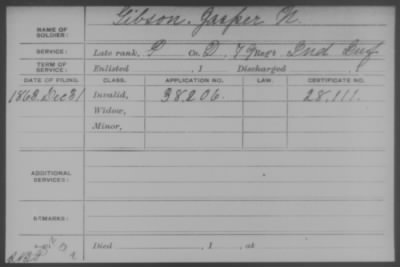 Gibson, Jasper N.
NAME OF SOLDIER:
SERVICE: Late rank, P Co. D, 79 Reg't Ind Inf
TERM OF SERVICE: Enlisted , 1 Discharged , 1
DATE OF FILING. CLASS. APPLICATION NO. LAW. CERTIFICATE NO.
1863 Dec 31 Invalid, 38206. 28,111.
Widow,
Minor,
ADDITIONAL SERVICES:
REMARKS:
Died , 1 , at